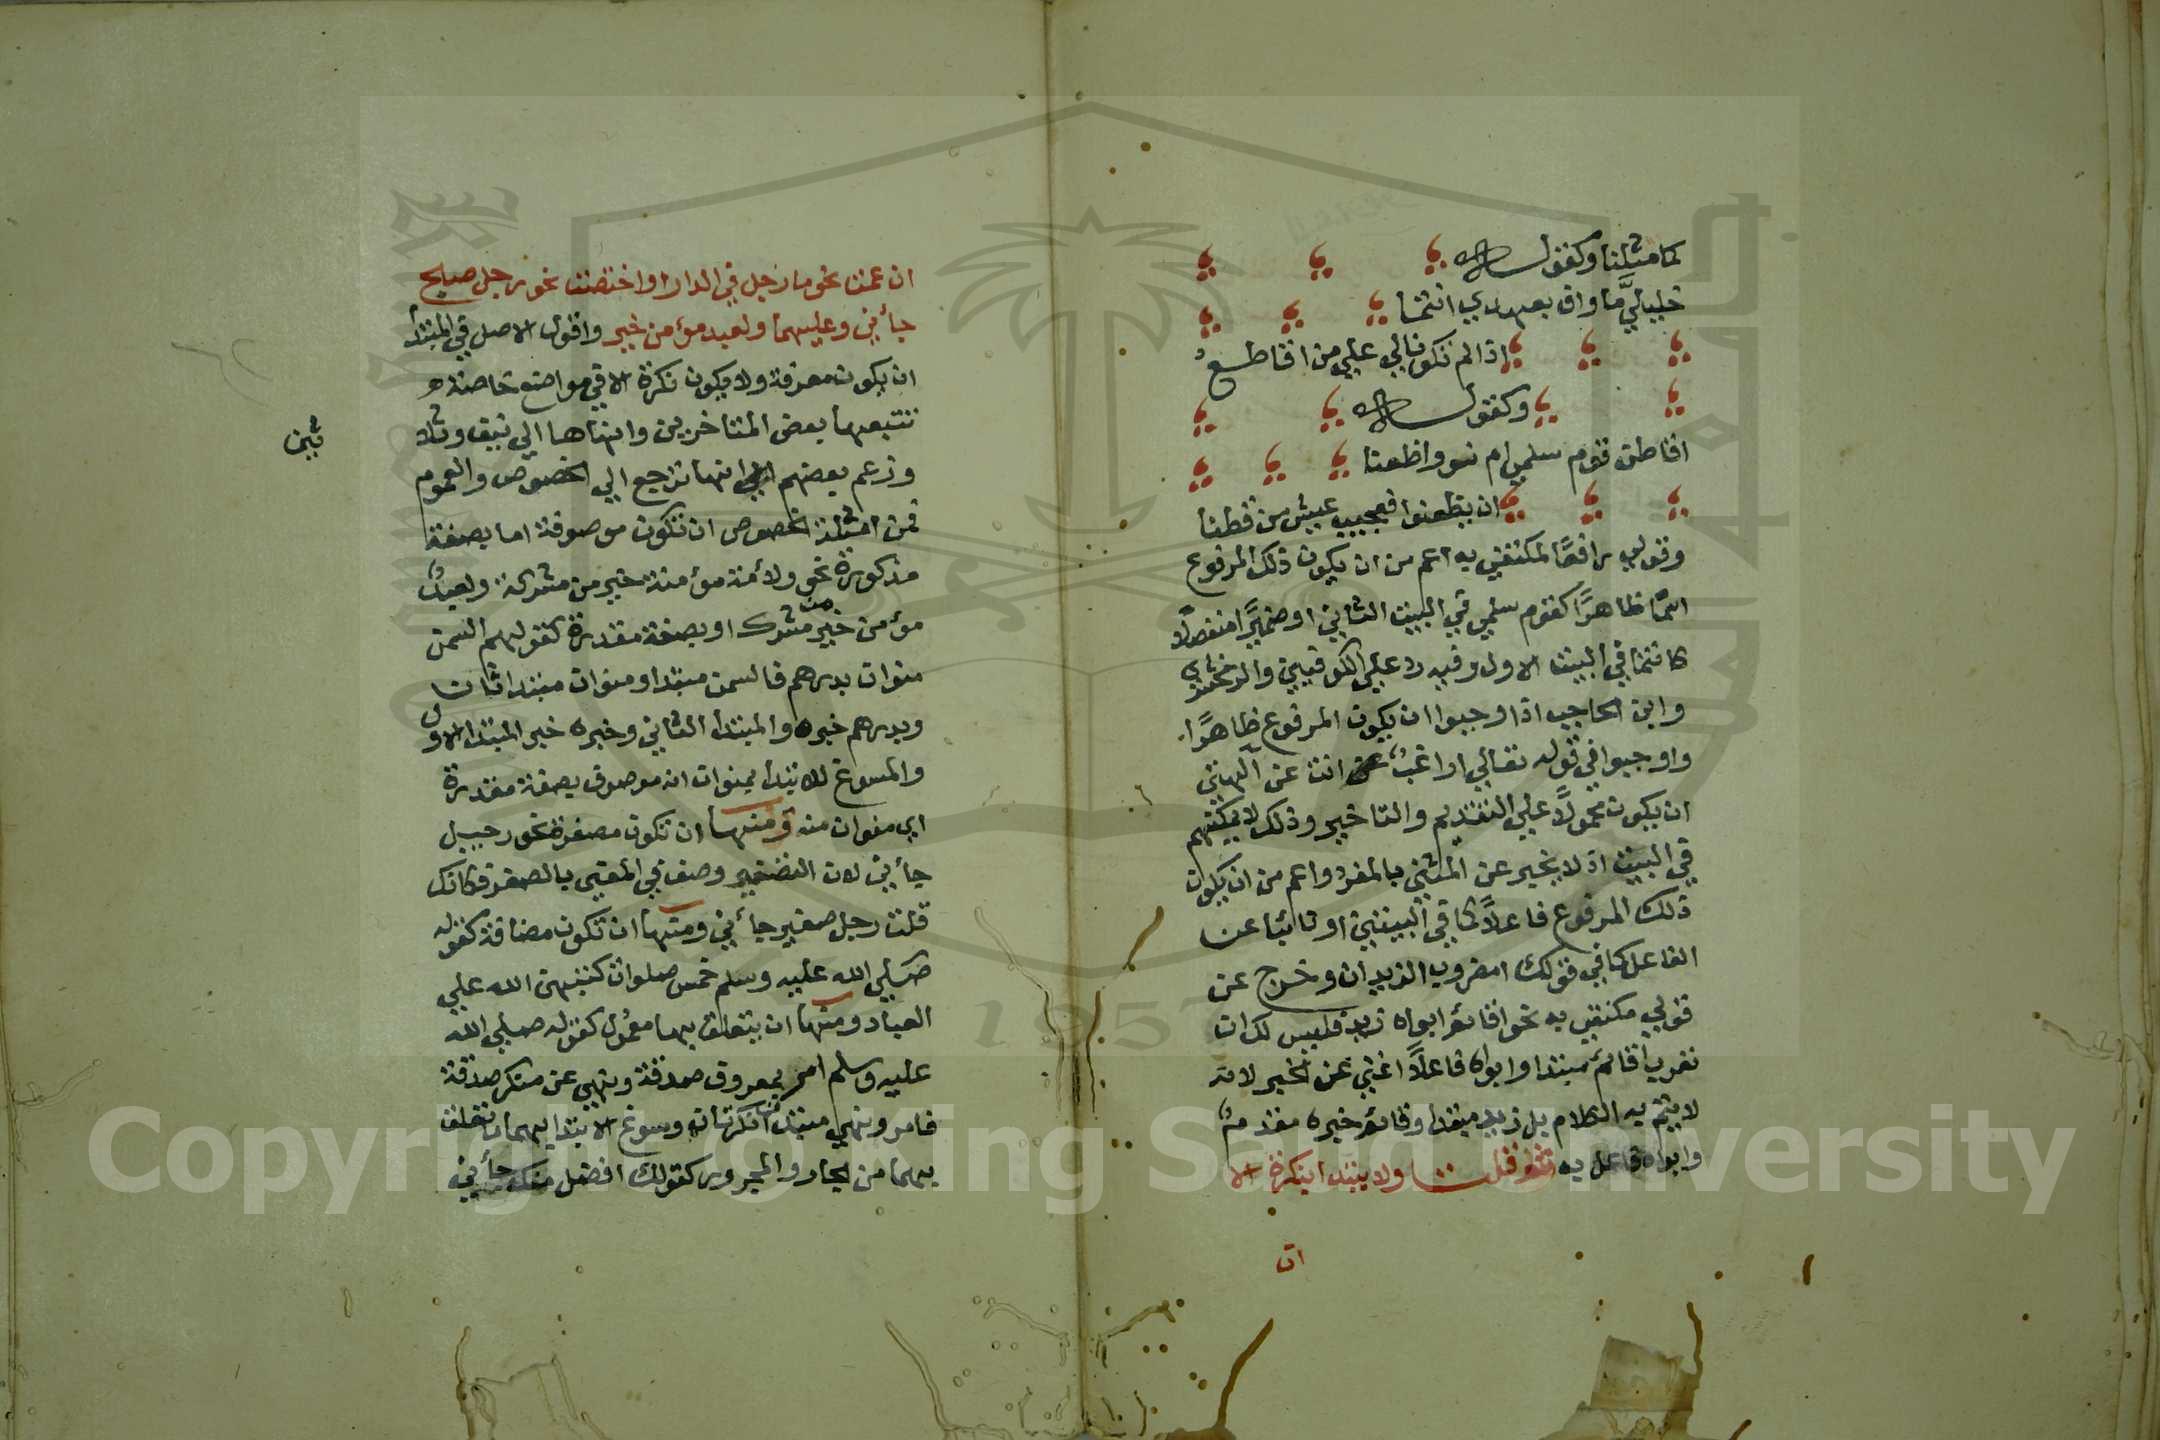 كما مثلنا وكقوله
خليلي ما واف بعهدي انتما
اذا لم تكونا لي علي من اقاطع
وكقوله
اقاطن قوم سلمي ام نووا ظعنا
ان يظعنوا فعجيب عيش من قطنا
وقولي رافعًا لمكتفي به اعم من ان يكون ذلك المرفوع
اسمًا ظاهرًا كقوم سلمي في البيت الثاني او ضميرًا منفصلًا
كانتما في البيت الاول وفيه رد علي الكوفيين والزمخشري
وابن الحاجب اذا وجبوا ان يكون المرفوع ظاهرًا
واوجبوا في قوله تعالي اراغب انت عن آلهتي
ان يكون محمولًا علي التقديم والتاخير وذلك لا يمكنهم
في البيت اذ لا يخبر عن المثني بالمفرد واعم من ان يكون
ذلك المرفوع فاعلًا كما في البيتين او نائبا عن
الفاعل كما في قولك امضروب الزيدان وخرج عن
قولي مكتفي به نحو اقائم ابواه زيد فليس لك ان
تعرب اقائم مبتدا وابواه فاعلًا اغني عن الخبر لانه
لا يتم به الكلام بل زيد مبتدا وقائم خبره مقدم
وابواه فاعل به ثم قلت ولا يبتدا بنكرة الا
ان
ان عمت نحو ما رجل في الدار او اختصت نحو رجل صالح
جاءني وعليهما ولعبد مؤمن خير واقول الاصل في المبتدأ
ان يكون معرفة ولا يكون نكرة الا في مواضع خاصة
تتبعها بعض المتاخرين وانهاها الي نيف وثلا
ثين
وزعم بعضهم انها ترجع الي الخصوص والعموم
فمن امثلة الخصوص ان تكون موصوفة اما بصفة
مذكورة نحو ولأمة مؤمنة خير من مشركة ولعبد
مؤمن خير من مشرك او بصفة مقدرة كقولهم السمن
منوان بدرهم فالسمن مبتدا ومنوان مبتدا ثان
وبدرهم خبره والمبتدا الثاني وخبره خبر المبتدا الاول
والمسوغ للابتدا بمنوان انه موصوف بصفة مقدرة
اي منوان منه ومنها ان تكون مصغرة نحو رجيل
جاءني لان التصغير وصف في المعني بالصغر فكانك
قلت رجل صغير جاءني ومنها ان تكون مضافة كقوله
صلي الله عليه وسلم خمس صلوات كتبهن الله علي
العباد ومنها ان يتعلق بها معمول كقوله صلي الله
عليه وسلم امر بمعروف صدقة ونهي عن منكر صدقة
فامر ونهي مبتدان نكرتان وسوغ الابتدا بهما ما تعلق
بهما من الجار والمجرور كقولك افضل منك جاءني
Copyright © King Saud University
1957